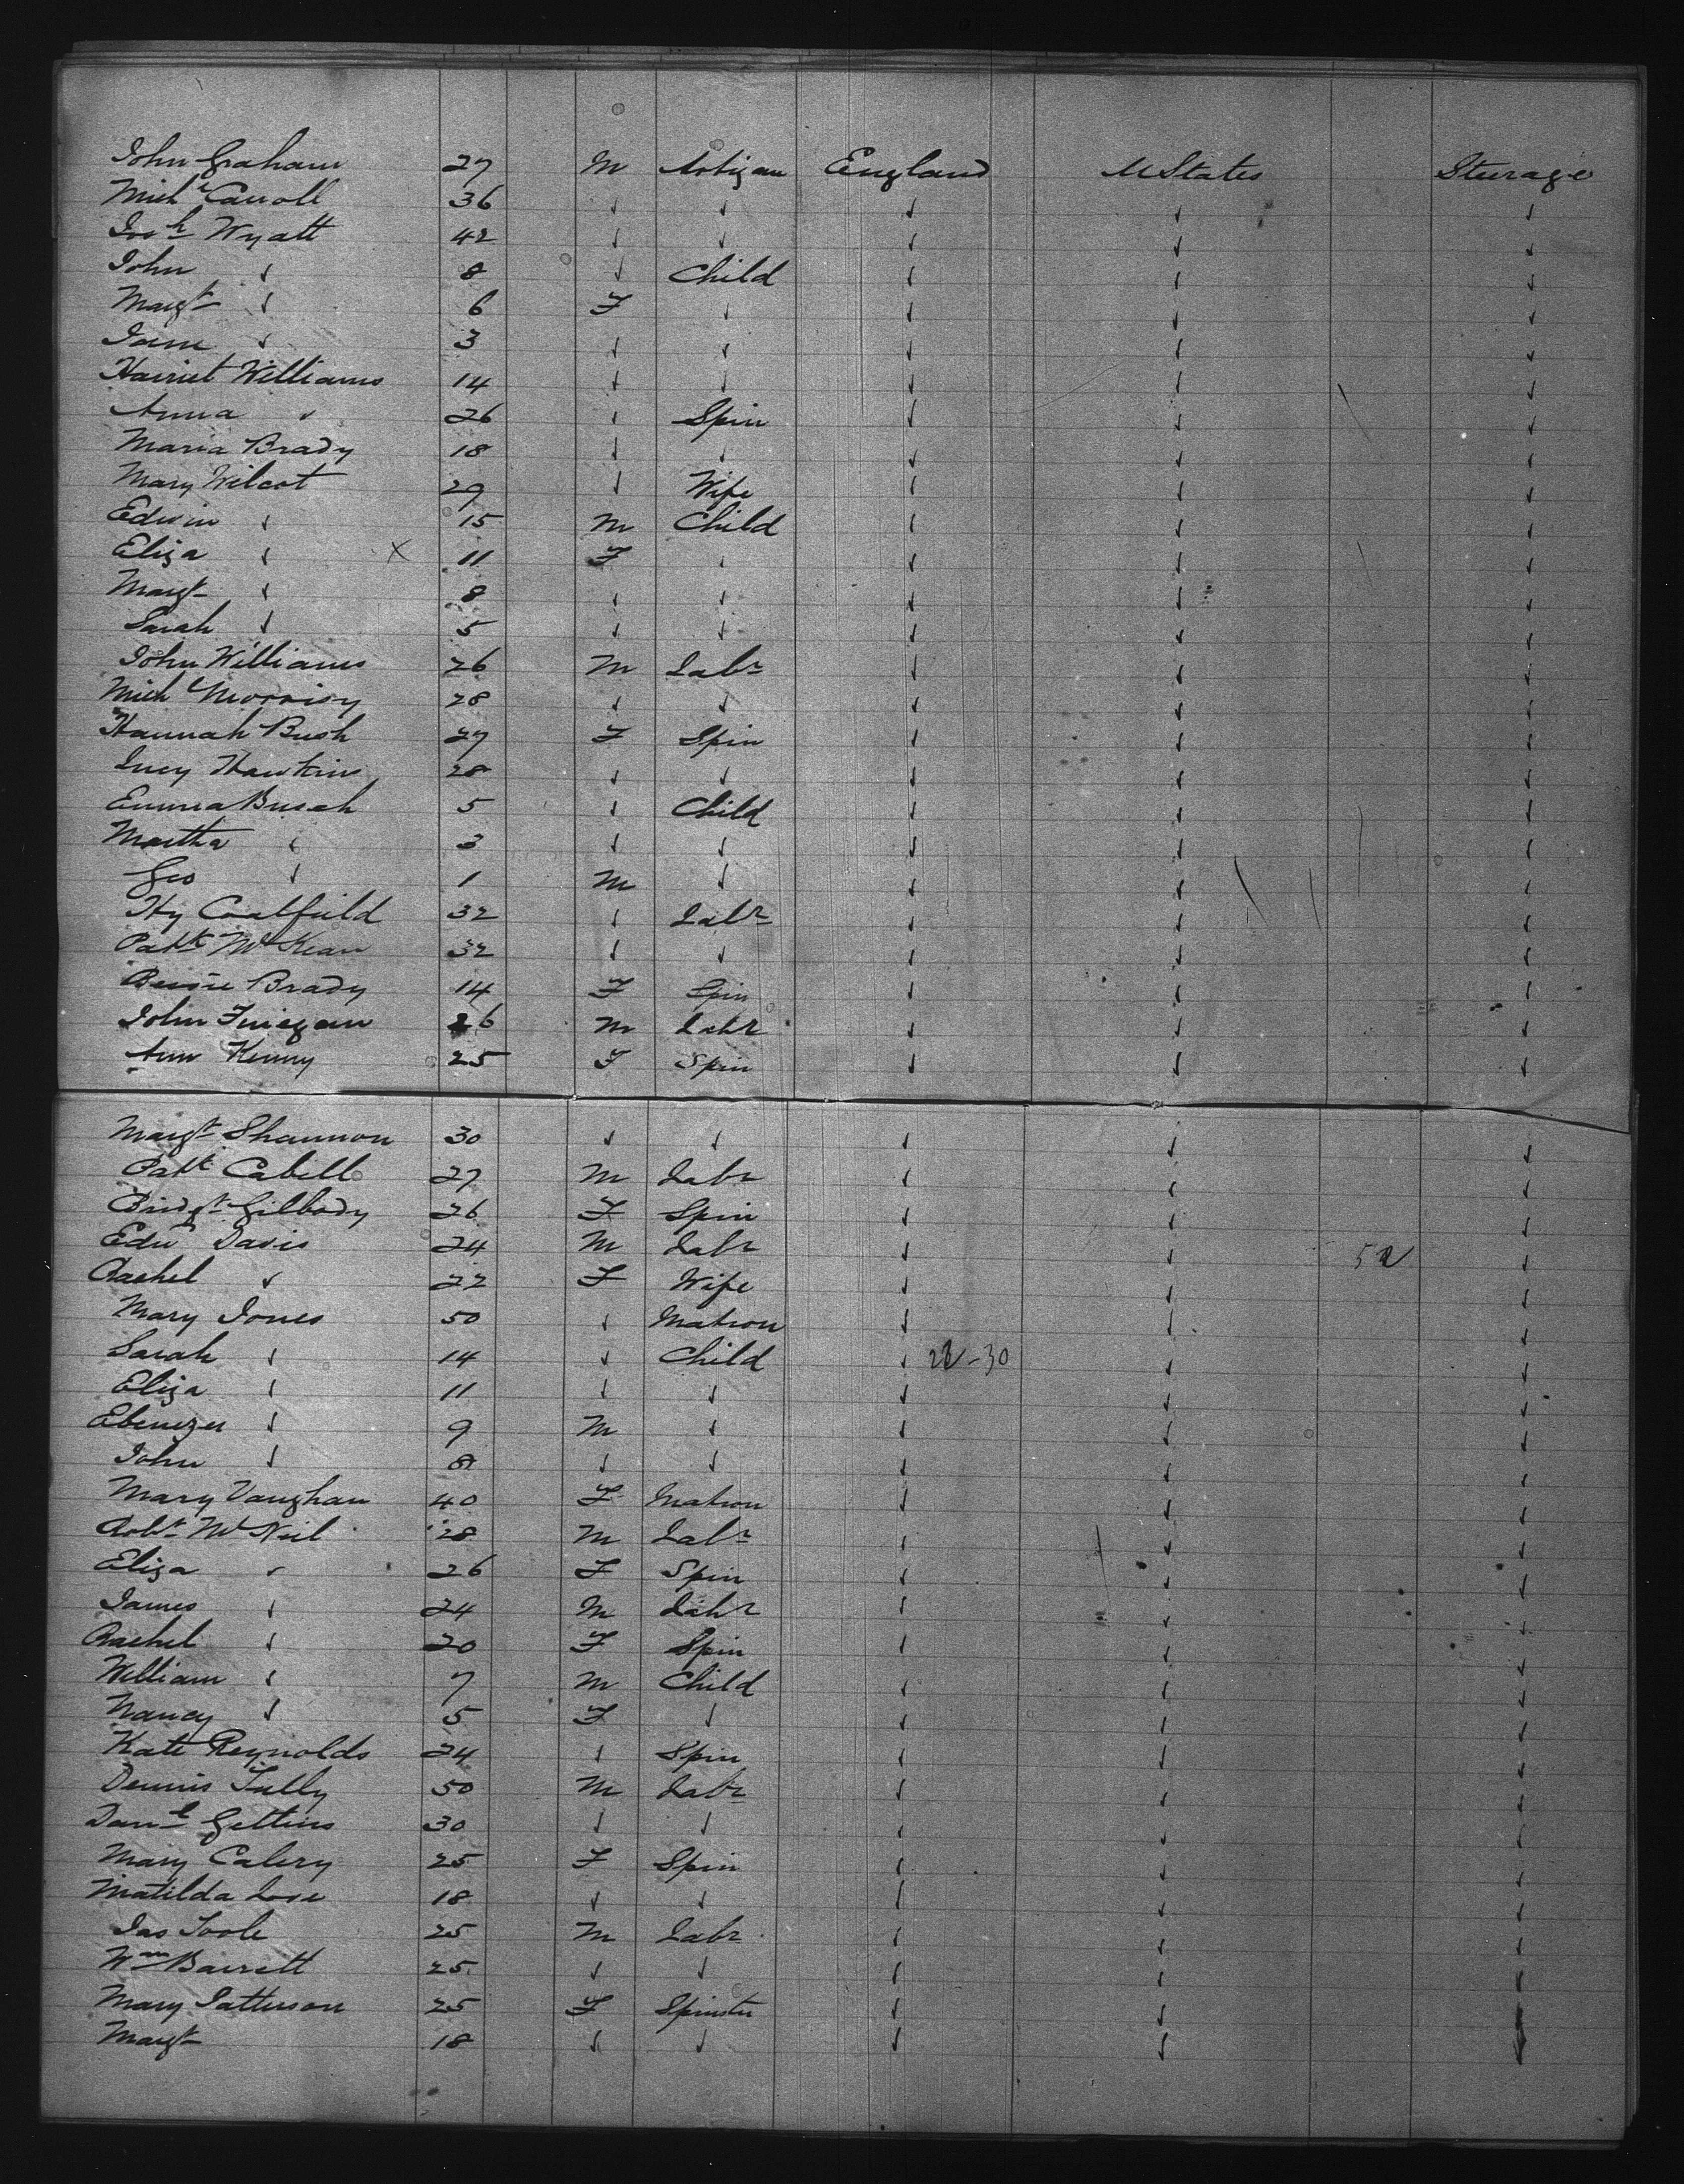 John Graham 27 M Artizan England U States Steerage
Michl Carroll 36 ✓ ✓ ✓ ✓ ✓
Josh Wyatt 42 ✓ ✓ ✓ ✓ ✓
John ✓ 8 ✓ Child ✓ ✓ ✓
Margt ✓ 6 F ✓ ✓ ✓ ✓
Jane ✓ 3 ✓ ✓ ✓ ✓ ✓
Harriet Williams 14 ✓ ✓ ✓ ✓ ✓
Anna ✓ 26 ✓ Spin ✓ ✓ ✓
Maria Brady 18 ✓ ✓ ✓ ✓ ✓
Mary Wilcot 29 ✓ Wife ✓ ✓ ✓
Edwin ✓ 15 M Child ✓ ✓ ✓
Eliza ✓ X 11 F ✓ ✓ ✓ ✓
Margt ✓ 8 ✓ ✓ ✓ ✓ ✓
Sarah ✓ 5 ✓ ✓ ✓ ✓ ✓
John Williams 26 M Labr ✓ ✓ ✓
Michl Morrisy 28 ✓ ✓ ✓ ✓ ✓
Hannah Bush 27 F Spin ✓ ✓ ✓
Lucy Hawkins 28 ✓ ✓ ✓ ✓ ✓
Emma Busch 5 ✓ Child ✓ ✓ ✓
Martha ✓ 3 ✓ ✓ ✓ ✓ ✓
Geo ✓ 1 M ✓ ✓ ✓ ✓
Hy Coalfield 32 ✓ Labr ✓ ✓ ✓
Patk McKean 32 ✓ ✓ ✓ ✓ ✓
Bessie Brady 14 F Spin ✓ ✓ ✓
John Finegan 26 M Labr ✓ ✓ ✓
Ann Kenny 25 F Spin ✓ ✓ ✓
Margt Shannon 30 ✓ ✓ ✓ ✓ ✓
Patk Cabell 27 M Labr ✓ ✓ ✓
Bridgt Gilbody 26 F Spin ✓ ✓ ✓
Edwd Davis 24 M Labr ✓ ✓ ✓
Rachel ✓ 22 F Wife ✓ ✓ ✓
Mary Jones 50 ✓ Matron ✓ ✓ ✓
Sarah ✓ 14 ✓ Child ✓ ✓ ✓
Eliza ✓ 11 ✓ ✓ ✓ ✓ ✓
Ebenezer ✓ 9 M ✓ ✓ ✓ ✓
John ✓ 8 ✓ ✓ ✓ ✓ ✓
Mary Vaughan 40 F Matron ✓ ✓ ✓
Robt McNeil 28 M Labr ✓ ✓ ✓
Eliza ✓ 26 F Spin ✓ ✓ ✓
James ✓ 24 M Labr ✓ ✓ ✓
Rachel ✓ 20 F Spin ✓ ✓ ✓
William ✓ 7 M Child ✓ ✓ ✓
Nancy ✓ 5 F ✓ ✓ ✓ ✓
Kate Reynolds 24 ✓ Spin ✓ ✓ ✓
Dennis Tully 50 M Labr ✓ ✓ ✓
Danl Gettins 30 ✓ ✓ ✓ ✓ ✓
Mary Calery 25 F Spin ✓ ✓ ✓
Matilda 18 ✓ ✓ ✓ ✓ ✓
Jas Toole 25 M Labr ✓ ✓ ✓
Wm Barrett 25 ✓ ✓ ✓ ✓ ✓
Mary Patterson 25 F Spinster ✓ ✓ ✓
Margt 18 ✓ ✓ ✓ ✓ ✓